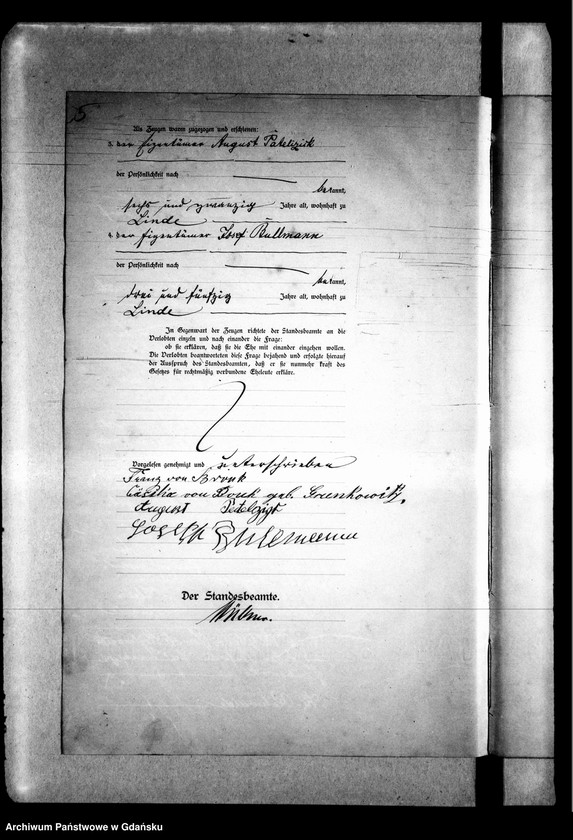 5
Als Zeugen waren zugezogen und erschienen:
3. der Eigentümer August Patelzick
der Persönlichkeit nach
bekannt,
sechs und zwanzig Jahre alt, wohnhaft zu
Linde
4. der Eigentümer Josef Bullmann
der Persönlichkeit nach
bekannt,
drei und fünfzig Jahre alt, wohnhaft zu
Linde
In Gegenwart der Zeugen richtete der Standesbeamte an die
Verlobten einzeln und nach einander die Frage:
ob sie erklären, daß sie die Ehe mit einander eingehen wollen.
Die Verlobten beantworteten diese Frage bejahend und erfolgte hierauf
der Ausspruch des Standesbeamten, daß er sie nunmehr kraft des
Gesetzes für rechtmäßig verbundene Eheleute erkläre.
Vorgelesen genehmigt und unterschrieben
Franz von Bronk
von geb.
August
Joseph
Der Standesbeamte.